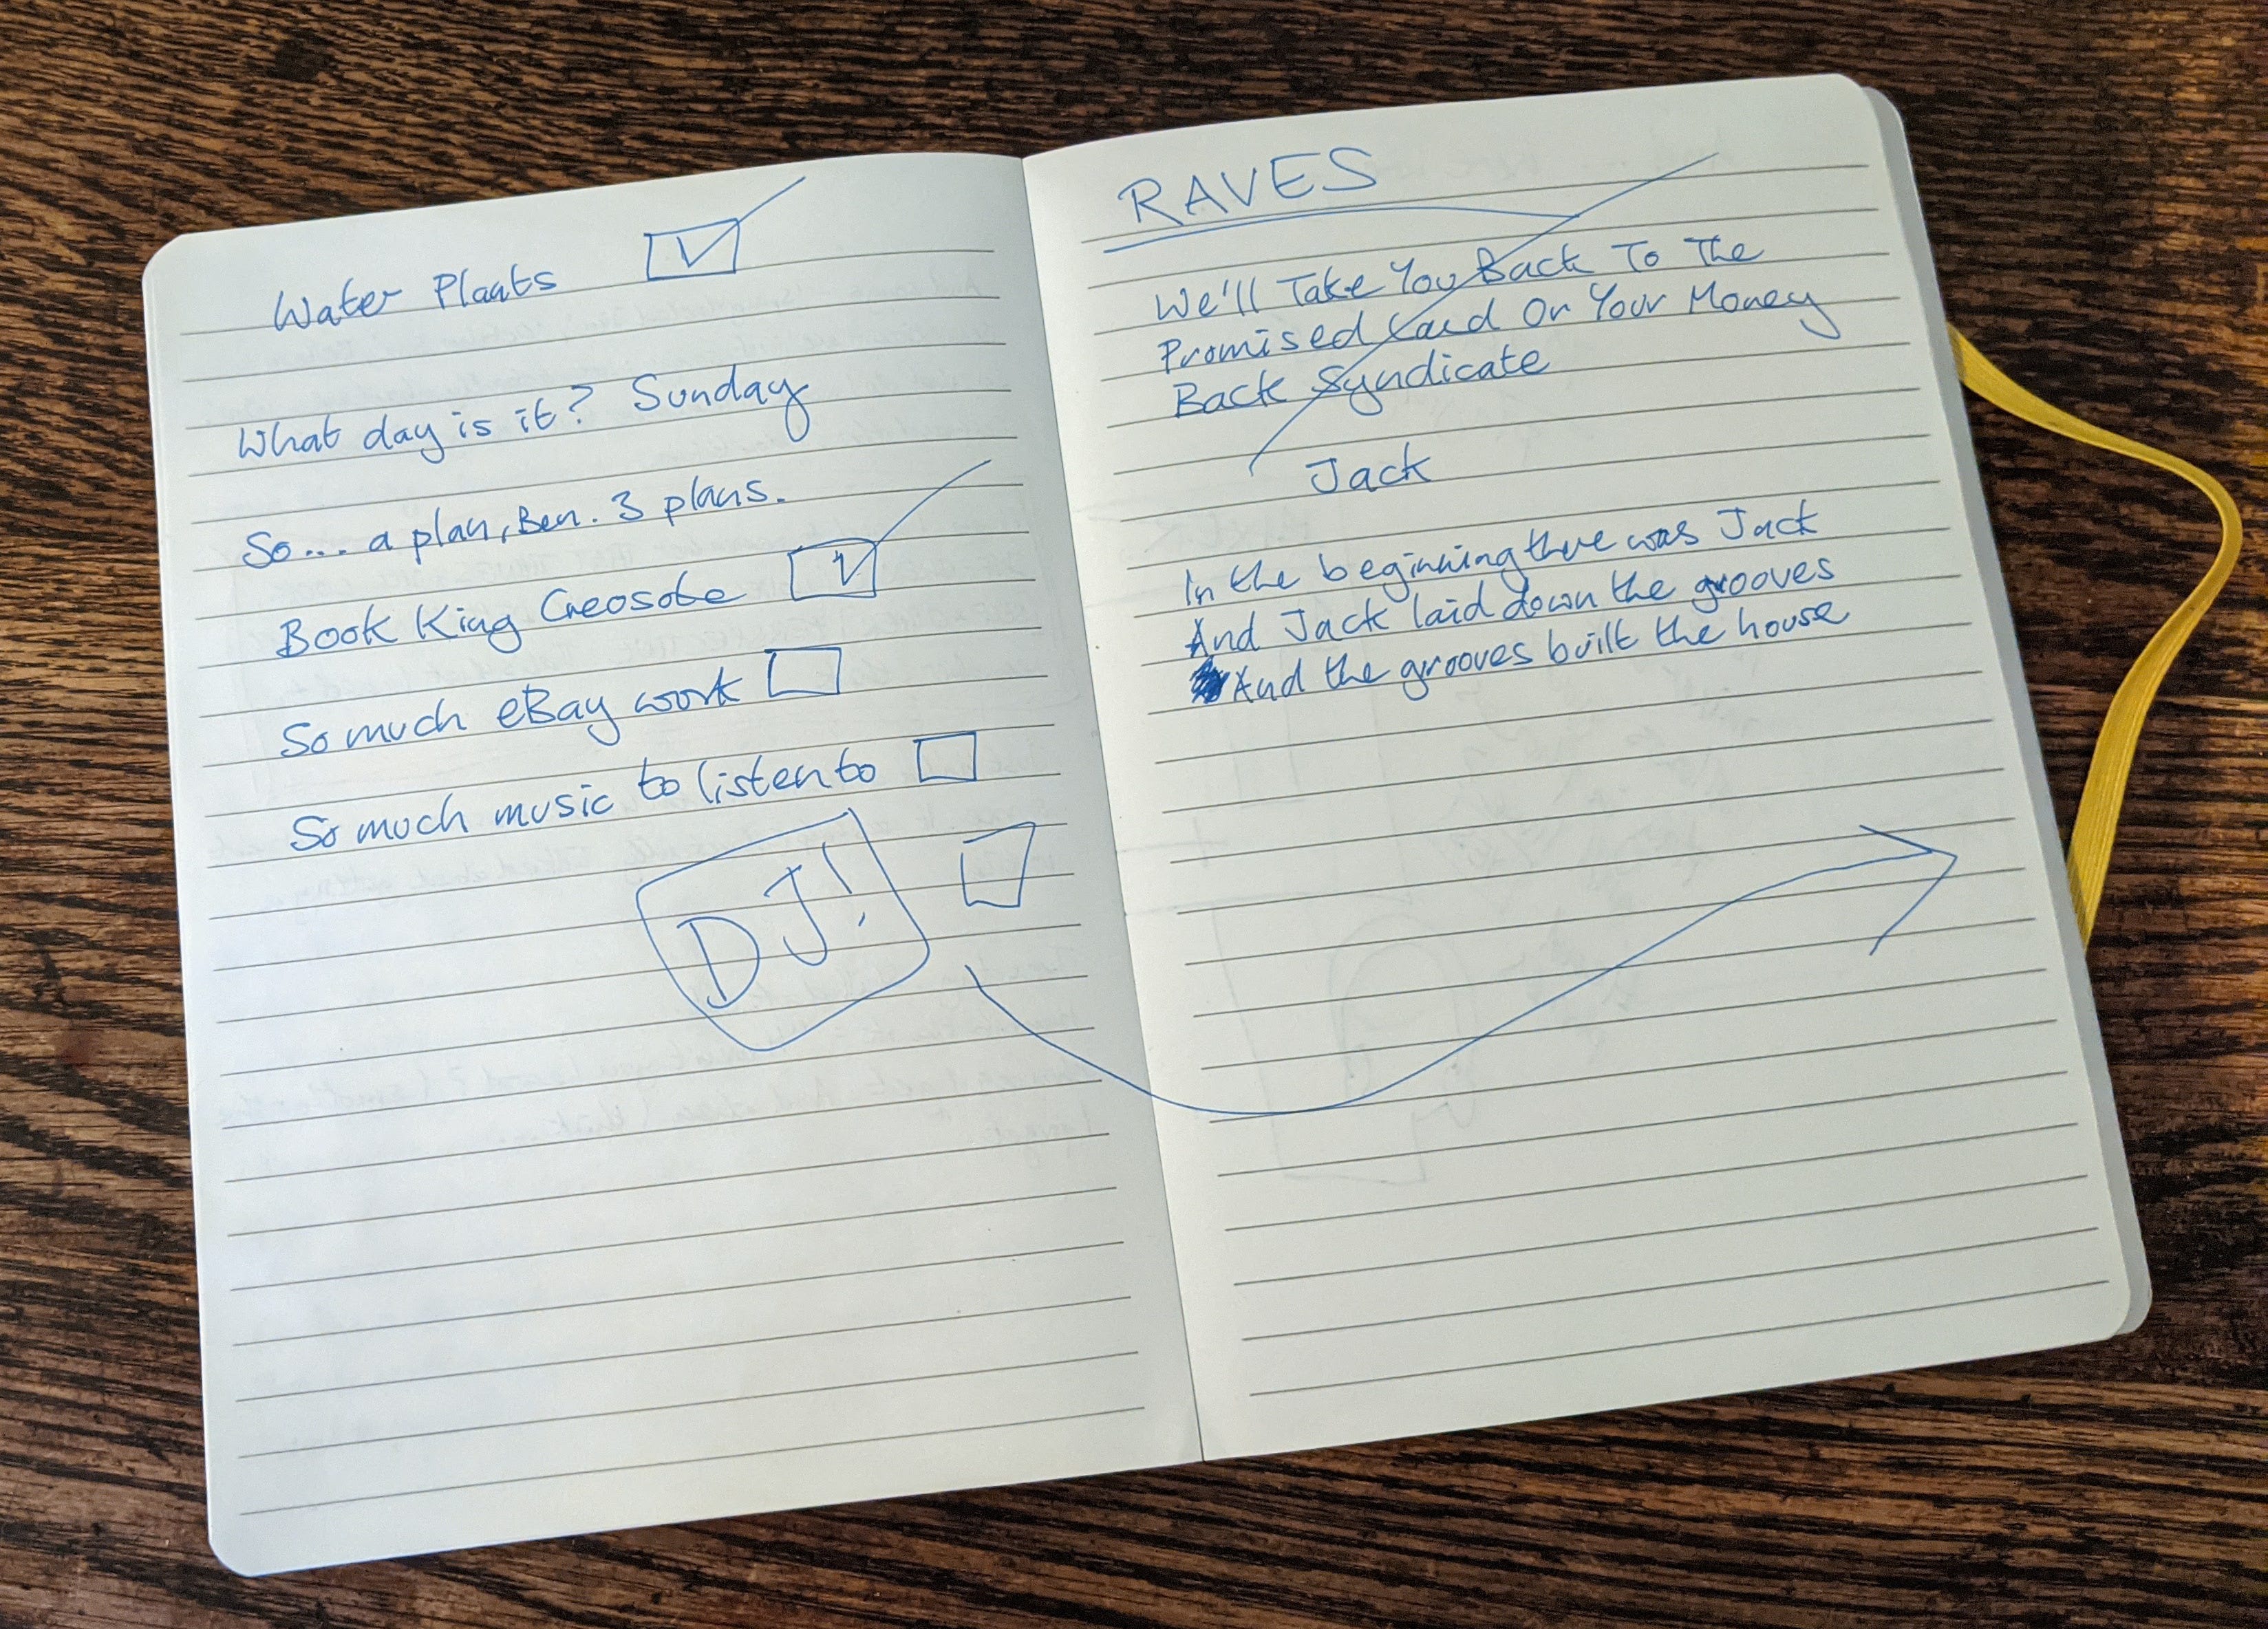 Water Plants
What day is it? Sunday
So... a plan, Ben. 3 plans.
Book King Creosote
So much eBay work
So much music to listen to
DJ!
RAVES
We'll Take You Back To The
Promised Land Or Your Money
Back Syndicate
Jack
In the beginning there was Jack
And Jack laid down the grooves
And the grooves built the house